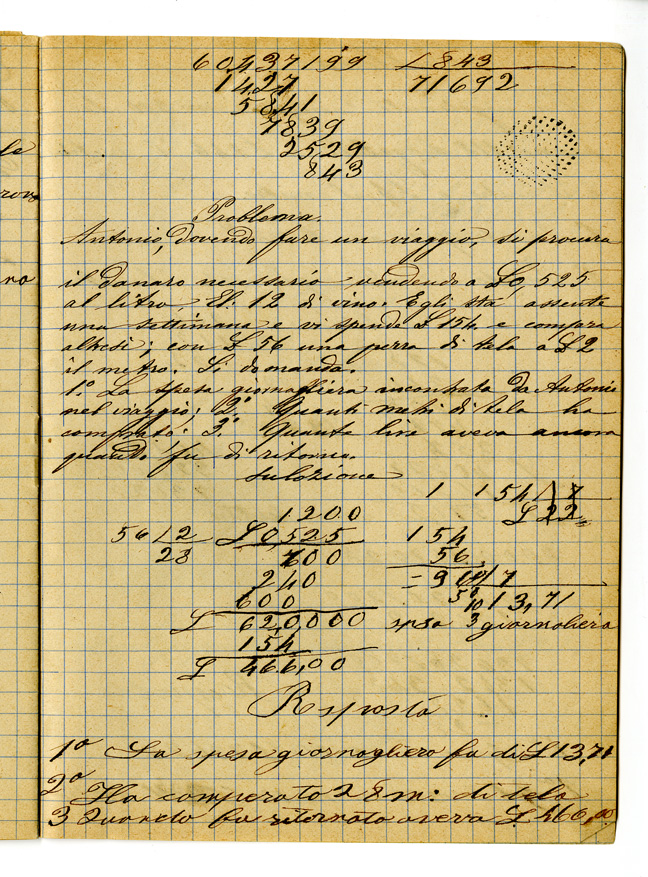 60437199 L 843
1427 71692
5841
7839
2529
843
Problema.
Antonio, dovendo fare un viaggio, si procura
il danaro necessario, vendendo a L 0,525
al litro El. 12 di vino. Egli sta assente
una settimana e vi spende L 154 e compera
altesi; con L 56 una perra di tela a L 2
il metro. Si domanda.
1.° La spesa giornagliera incontrata da Antonio
nel viaggio: 2.° Quanti metri di tela ha
comprato: 3.° Quante lire aveva ancora
quando fu di ritorno.
suluzione
1 154 / 7
L 22
1200
56 / 2 L 0,525 154
28 600 56
240 = 9 / 7
600 13,71
L 620,000 spesa giornaliera
154
L 466,00
Risposta
1° La spesa giornagliero fu di L 13,71
2° Ha comperato 28 m: di tela
3 Quando fu ritornato averra L 466,00